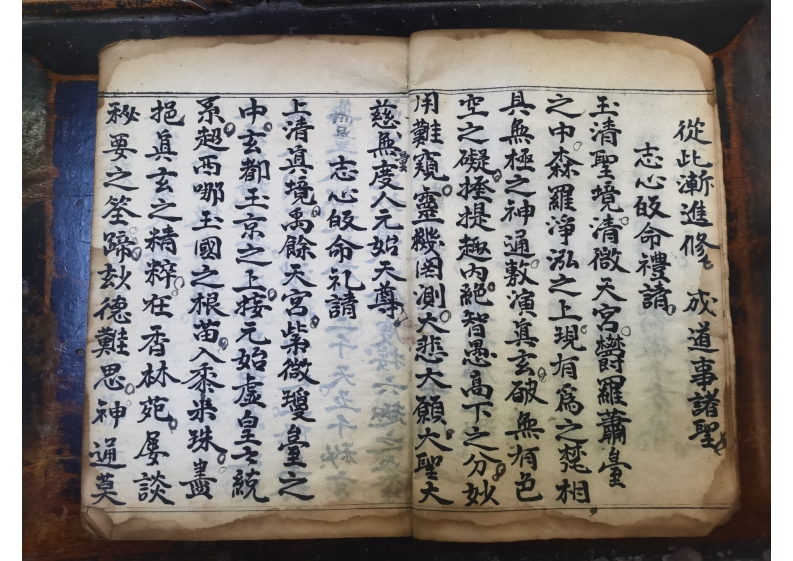 從此漸進修 成道事諸聖
志心皈命禮請
玉清聖境清微天宮欎羅蕭臺
之中森羅淨泓之上現有爲之梵相
具無極之神通敷演眞玄破無有色
空之礙接提趣內絕智愚高下之分妙
用難窺靈機罔測大悲大願大聖大
慈無量度人元始天尊
志心皈命礼請
上清眞境禹餘天宮紫微瓊臺之
中玄都玉京之上接元始虛皇之統
系超西哪玉國之根苗入黍米珠盡
挹眞玄之精粹在香林苑屡談
秘要之筌蹄玅德難思神通莫